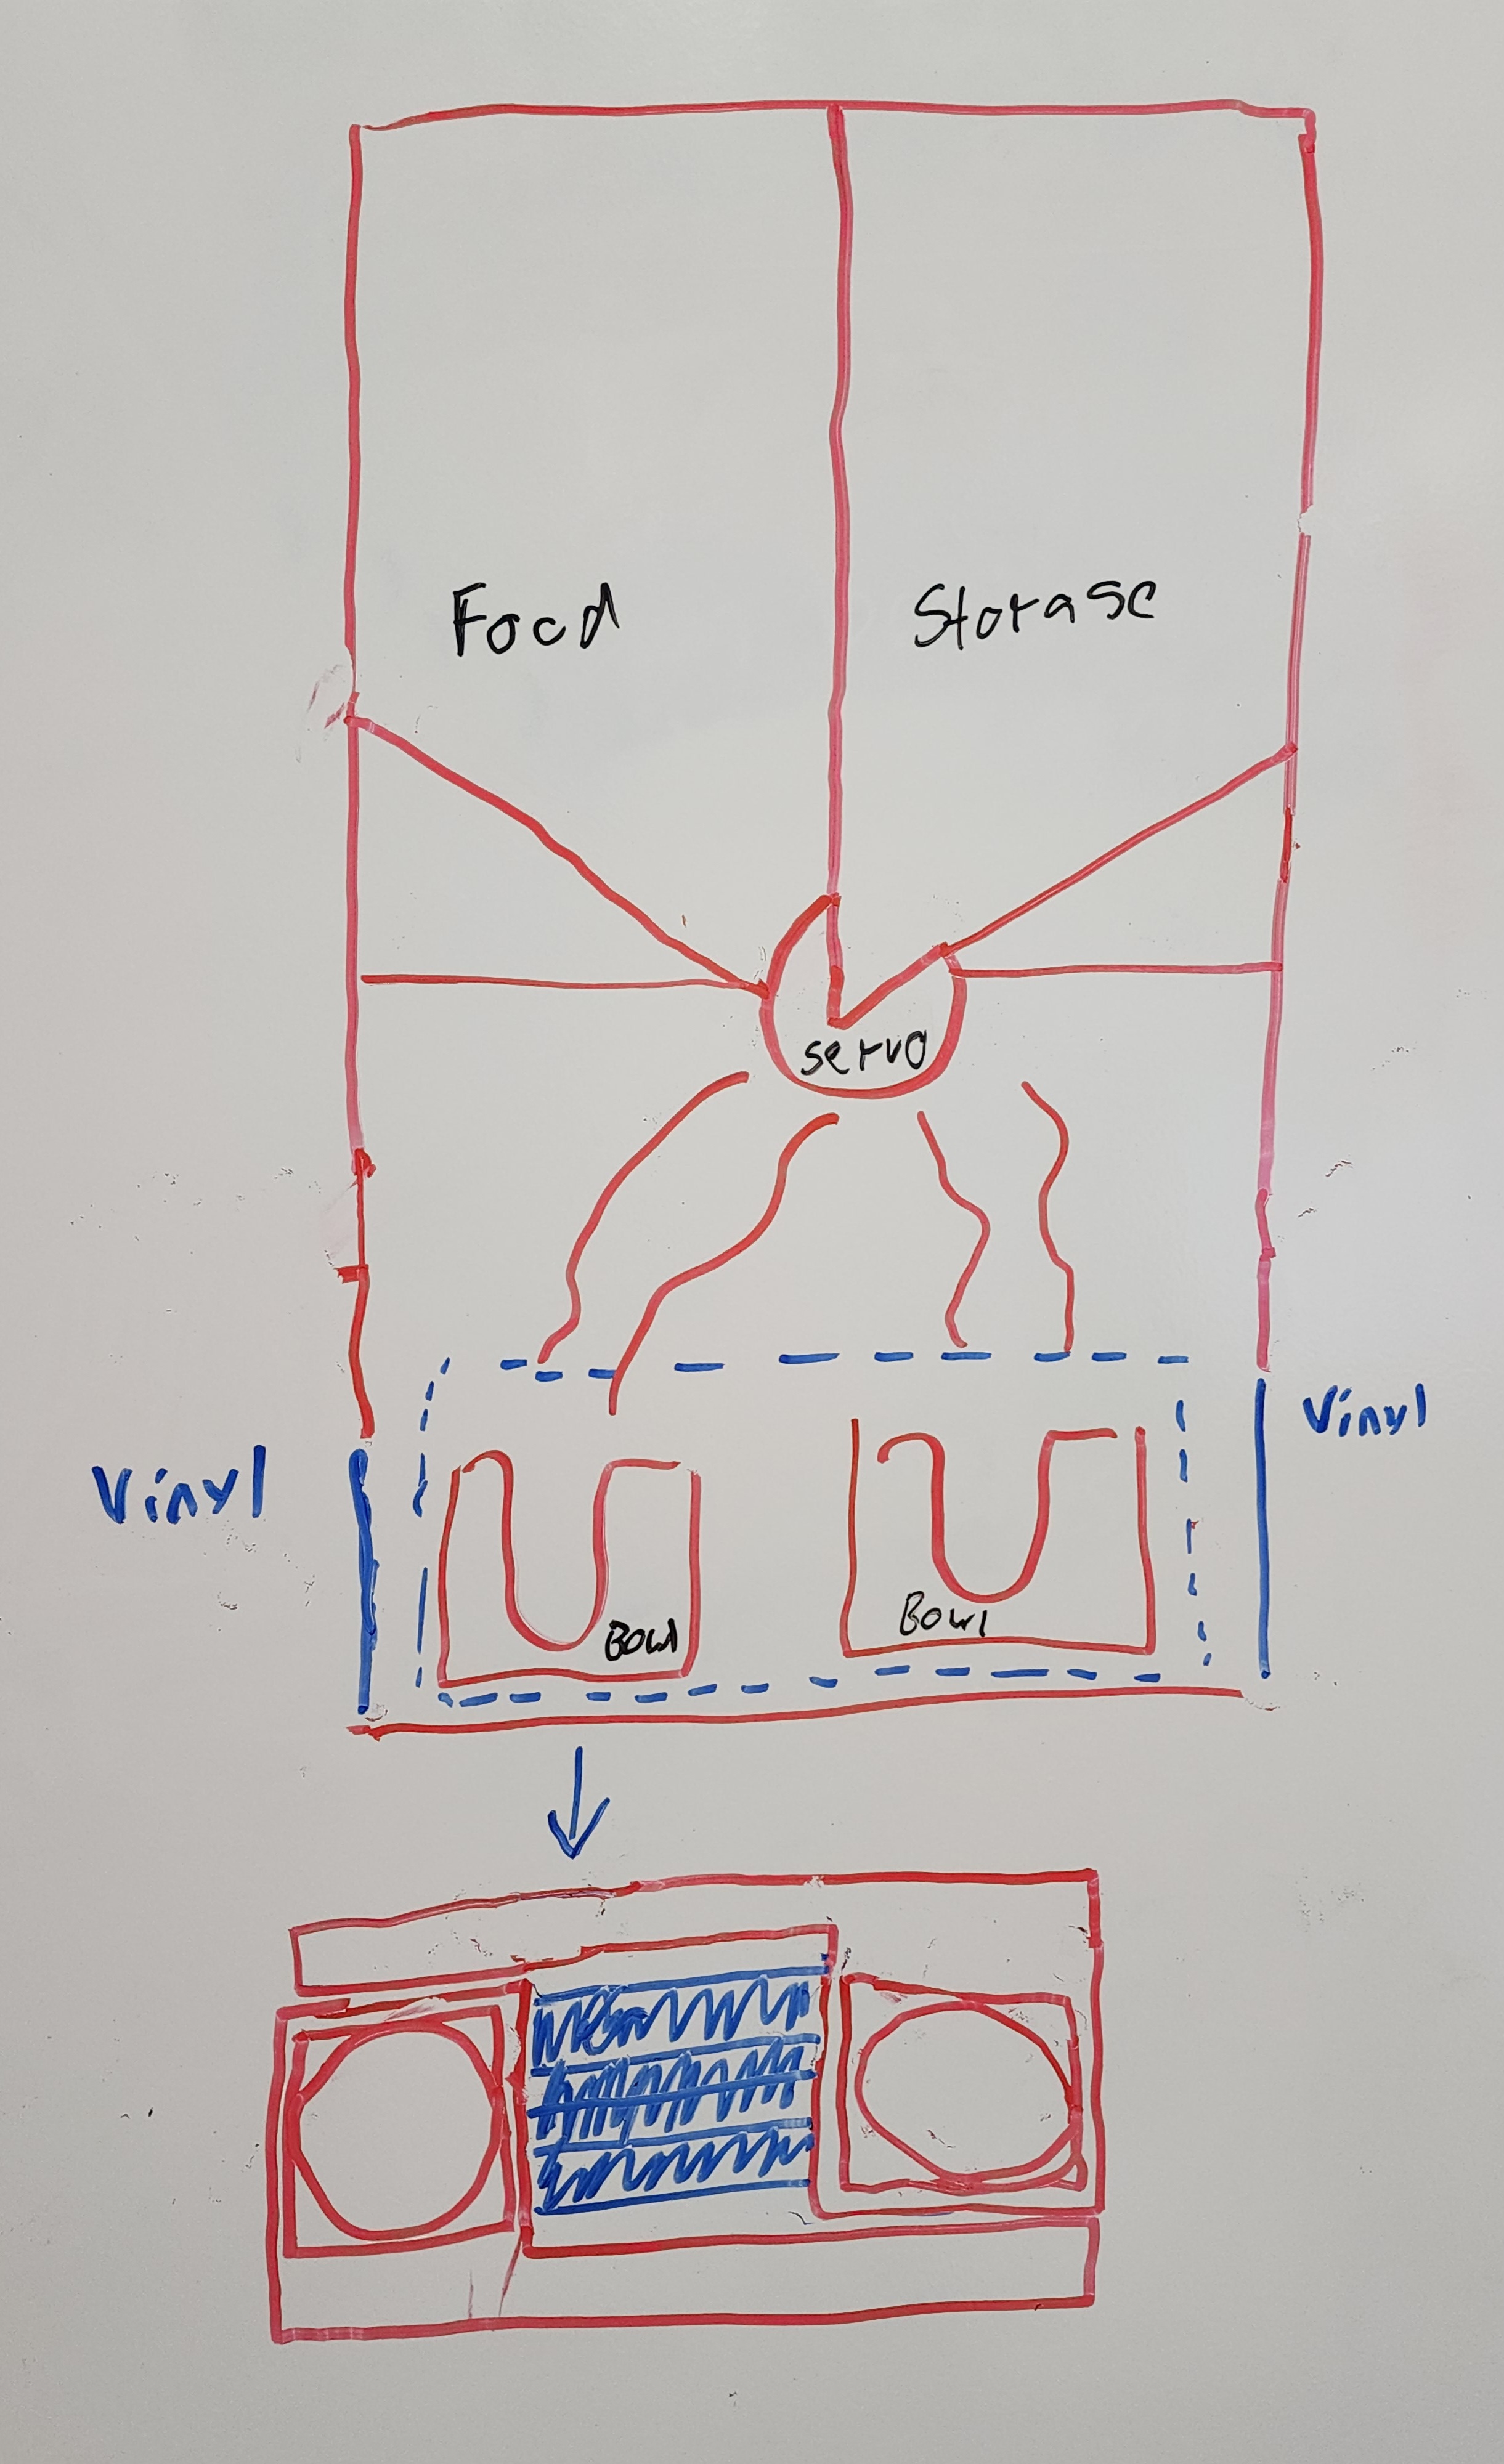 Food
Storase
servo
Vinyl
Vinyl
Bowl
Bowl